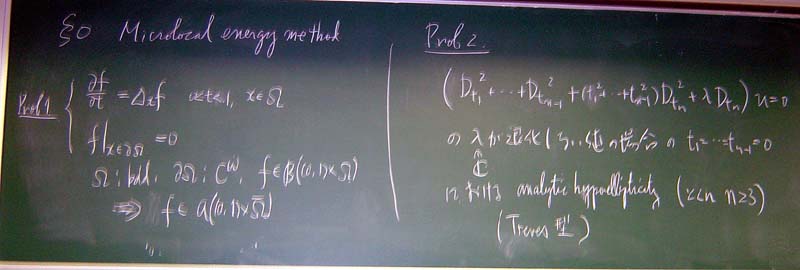 §0 Microlocal energy method
Prob 1 { ∂f/∂t = Δₓf 0<t<1, x∈Ω
f|x∈∂Ω = 0
Ω: bdd. ∂Ω: C^ω, f∈B((0,1)×Ω)
⇒ f∈a((0,1)×Ω̄)
Prob 2.
(D_{t₁}² + ⋯ + D_{t_{n-1}}² + (t₁² + ⋯ + t_{n-1}²) D_{t_n}² + λ D_{t_n}) u = 0
の λ が 退化 値の場合の t₁ = ⋯ = t_{n-1} = 0
ℂ
における analytic hypoellipticity ( n≥3)
(Treves 型)